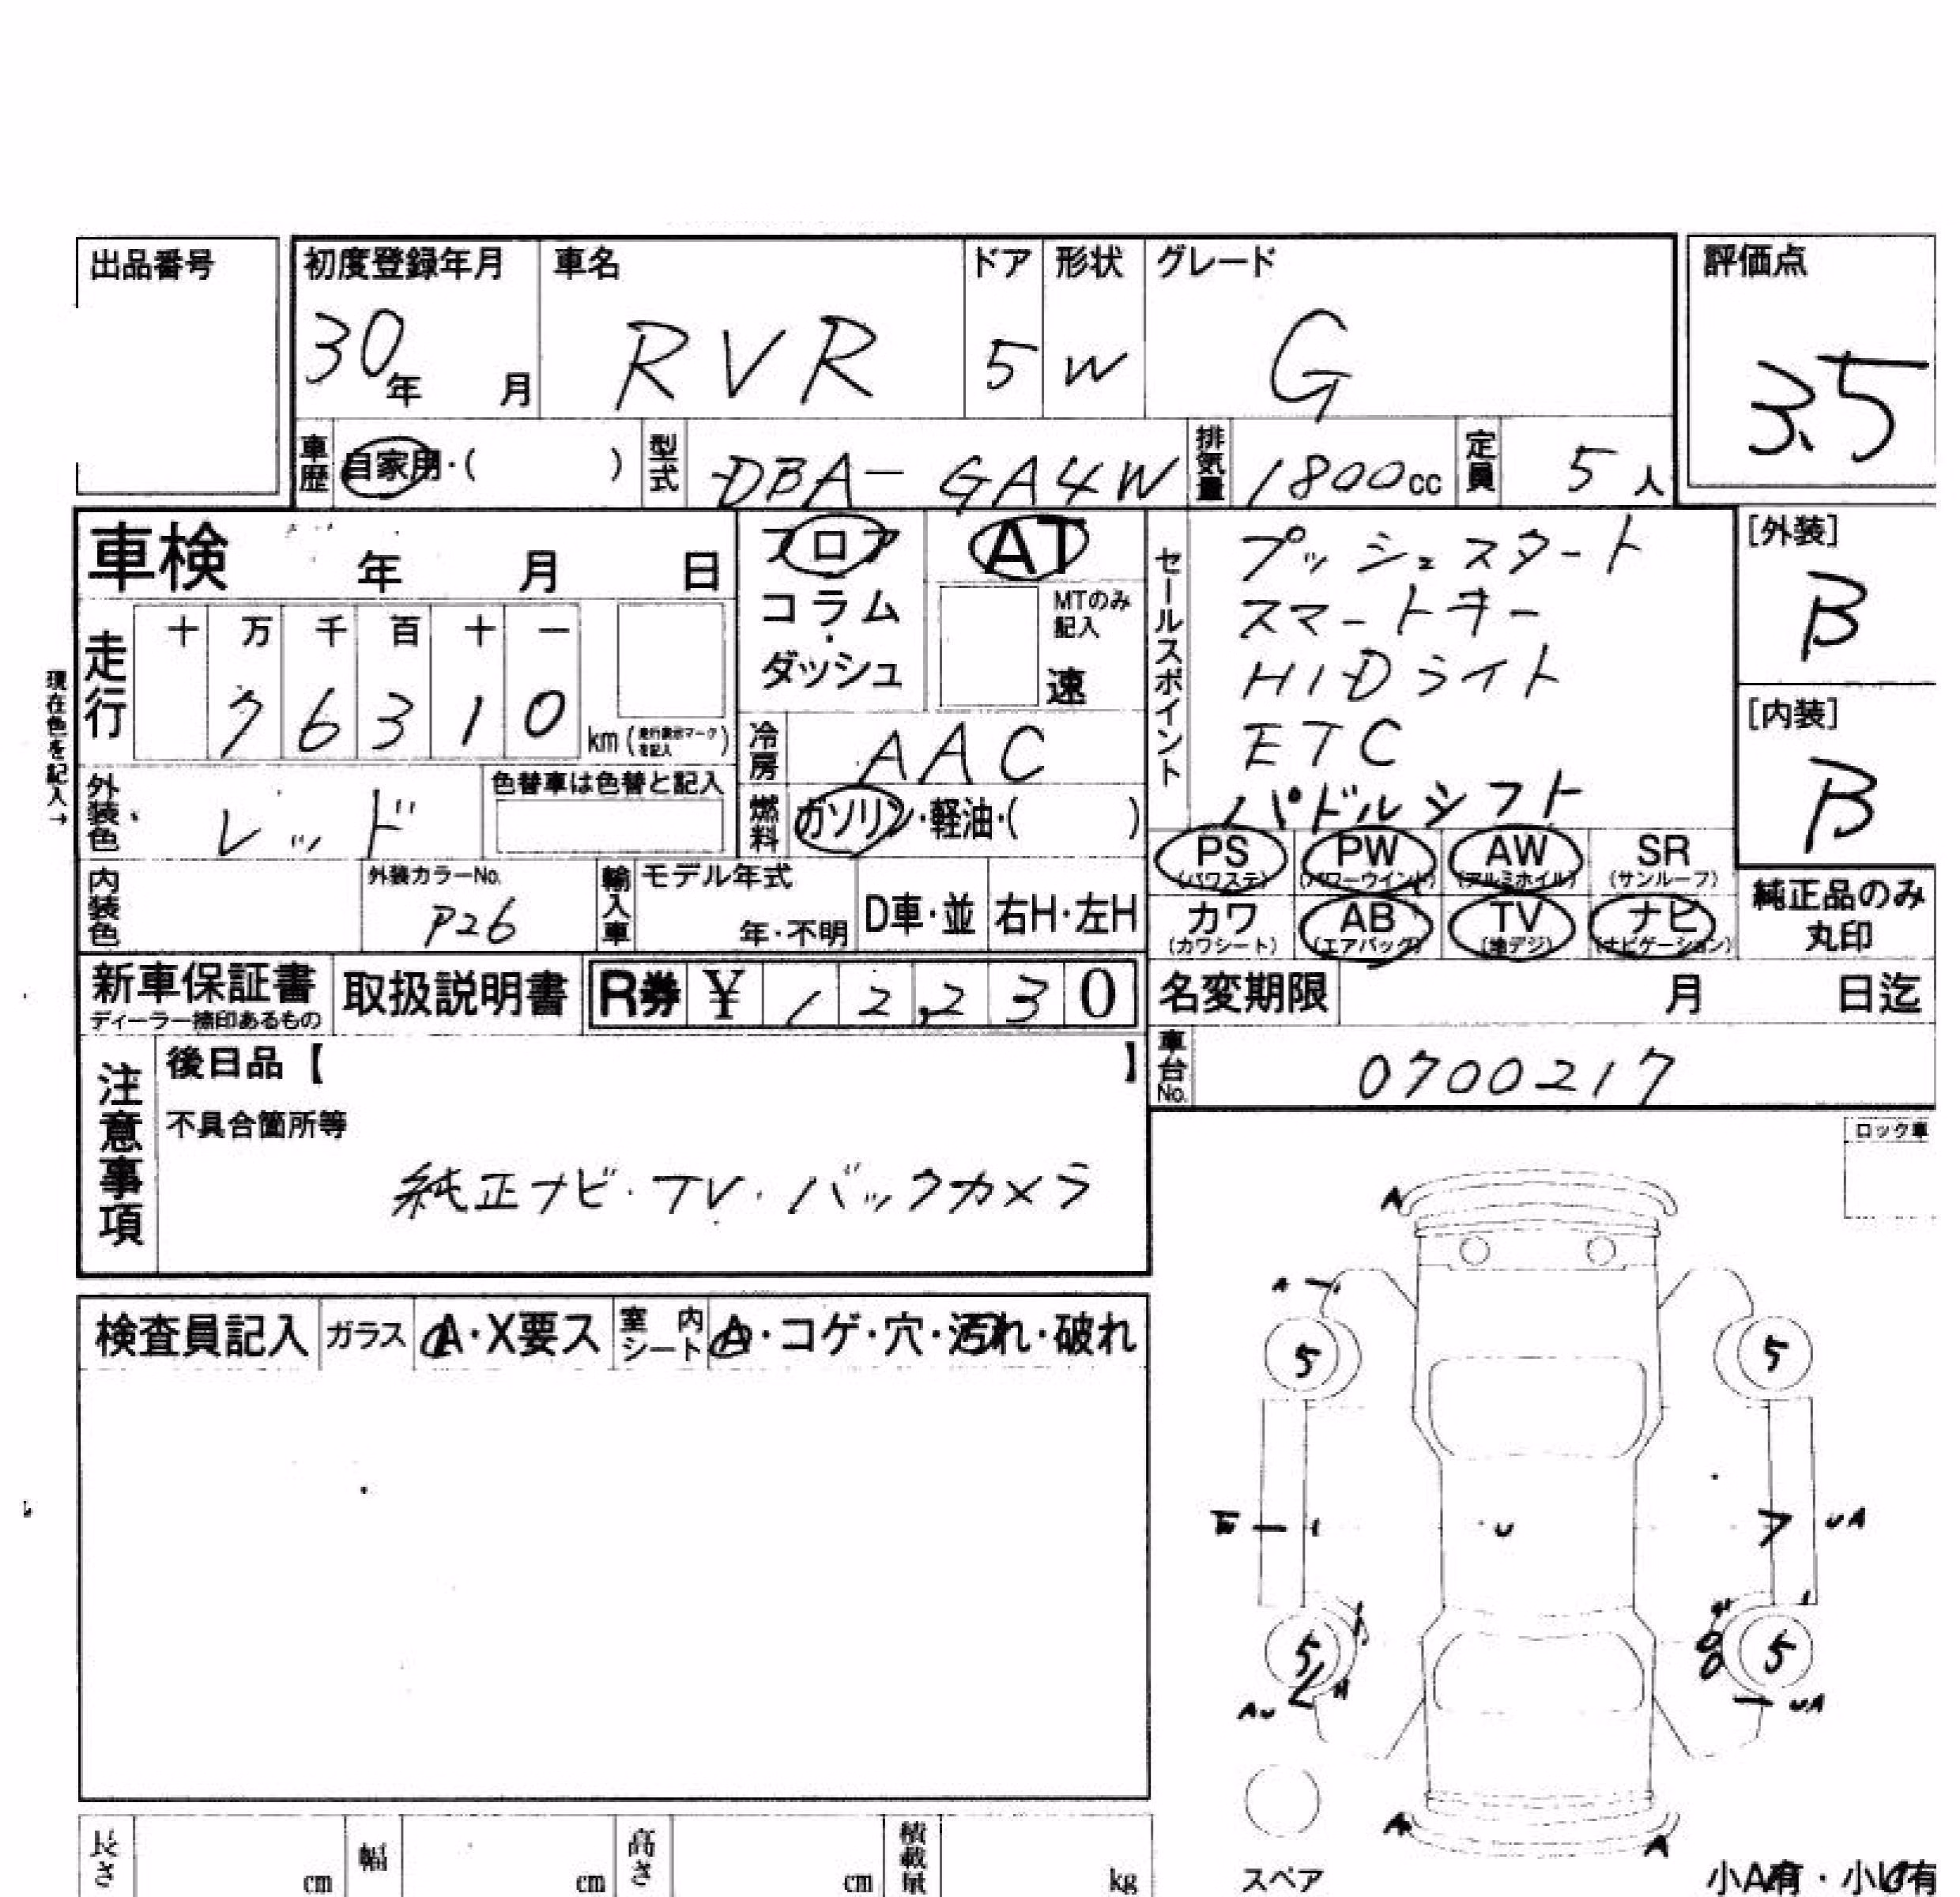 出品番号
初度登録年月 車名 ドア 形状 グレード 評価点
30年 月 RVR 5 W G 3.5
車歴 自家用・( ) 型式 DBA-GA4W 排気量 1800cc 定員 5人
車検 年 月 日 フロア AT
コラム・ダッシュ MTのみ記入 速
セールスポイント
プッシュスタート
スマートキー
HIDライト
ETC
パドルシフト
[外装]
B
[内装]
B
現在色を記入→
走行 十 万 千 百 十 一
7 6 3 1 0 km (走行表示マークを記入)
冷房 AAC
外装色 レッド 色替車は色替と記入
燃料 ガソリン・軽油・( )
PS AW PW SR
(パワステ) (パワーウインド) (アルミホイル) (サンルーフ)
内装色 外装カラーNo. P26 輸入車 モデル年式 年・不明 D車・並 右H・左H
カワ AB TV ナビ
(カワシート) (エアバッグ) (地デジ) (ナビゲーション)
純正品のみ
丸印
新車保証書 取扱説明書 R券 ¥ 12,230 名変期限 月 日迄
ディーラー捺印あるもの
注意事項 後日品【 】
車台No. 0700217
不具合箇所等
純正ナビ・TV・バックカメラ
ロック車
検査員記入 ガラス A・X要ス 室内シート A・コゲ・穴・汚れ・破れ
A
A
5 5
U UA
5 5
AU UA
A A
長さ cm 幅 cm 高さ cm 積載量 kg スペア 小A有・小U有